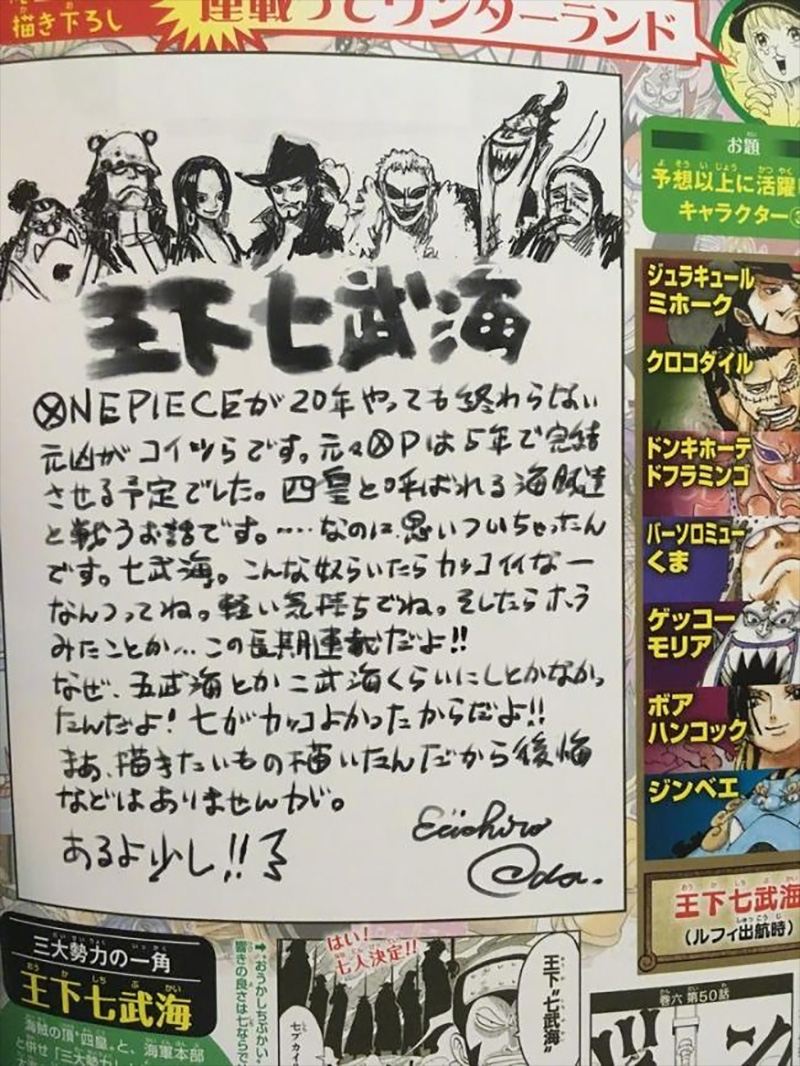 描き下ろし
連載つてワンダーランド
王下七武海
ONEPIECEが20年やっても終わらない
元凶がコイツらです。元々OPは5年で完結
させる予定でした。四皇と呼ばれる海賊達
と戦うお話です。……なのに、思いついちゃったん
です。七武海。こんな奴らいたらカッコイイなー
なんつってね。軽い気持ちでね。そしたらホラ
みたことか…この長期連載だよ!!
なぜ、五武海とか二武海くらいにしとかなかっ
たんだよ!七がカッコよかったからだよ!!
まあ、描きたいもの描いたんだから後悔
などはありませんが。
あるよ少し!!
Eiichiro
Oda.
お題
予想以上に活躍!
キャラクター
ジュラキュール
ミホーク
クロコダイル
ドンキホーテ
ドフラミンゴ
バーソロミュー
くま
ゲッコー
モリア
ボア
ハンコック
ジンベエ
王下七武海
(ルフィ出航時)
三大勢力の一角
王下七武海
海賊の頂“四皇”と、海軍本部
と併せ「三大勢力」
➡“おうかしちぶかい”。
響きの良さは七ならで
はい!
七人決定!!
七ブカイ
王下“七武海”
巻六 第50話